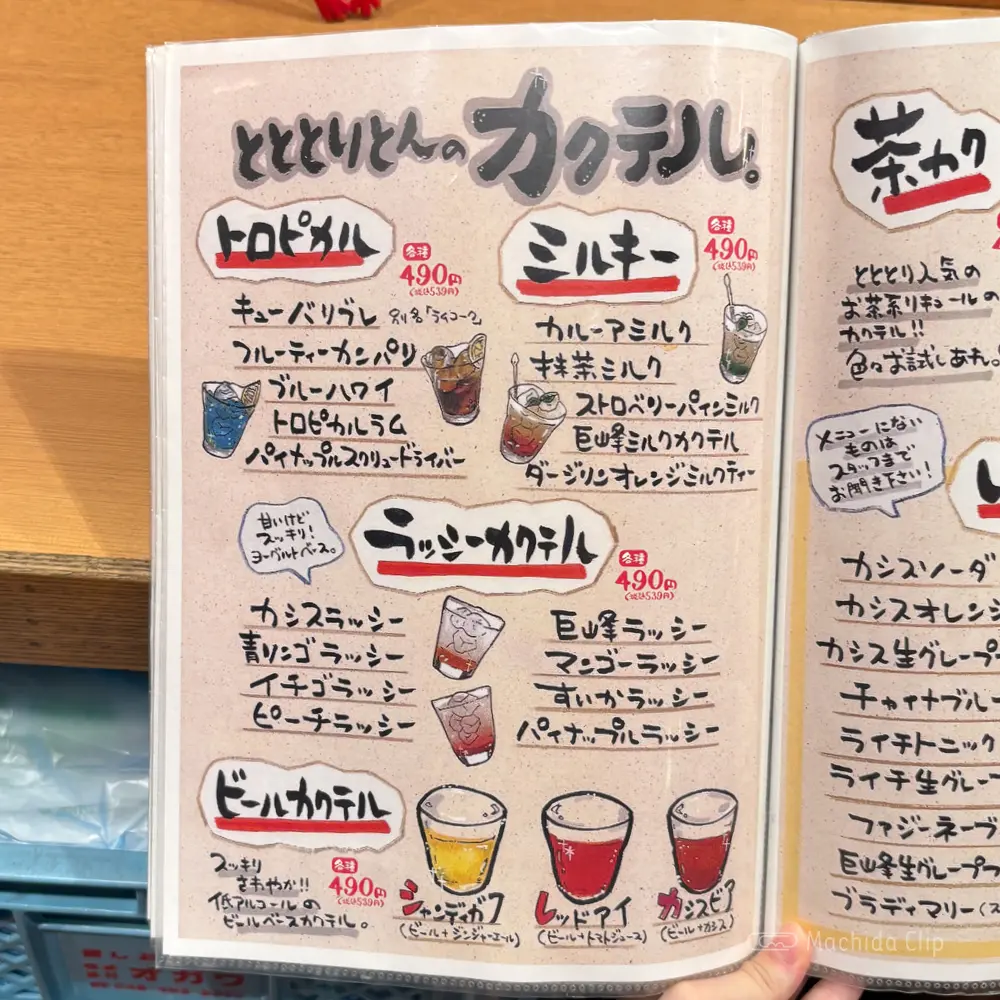 とととりとんのカクテル。
トロピカル
各種
490円
(税込539円)
キューバリブレ 別名「ラムコーク」
フルーティーカンパリ
ブルーハワイ
トロピカルラム
パイナップルスクリュードライバー
ミルキー
各種
490円
(税込539円)
カルーアミルク
抹茶ミルク
ストロベリーパインミルク
巨峰ミルクカクテル
ダージリンオレンジミルクティー
甘いけど
スッキリ!
ヨーグルトベース。
ラッシーカクテル
各種
490円
(税込539円)
カシスラッシー
青リンゴラッシー
イチゴラッシー
ピーチラッシー
巨峰ラッシー
マンゴーラッシー
すいかラッシー
パイナップルラッシー
ビールカクテル
スッキリ
さわやか!!
低アルコールの
ビールベースカクテル。
各種
490円
(税込539円)
シャンディガフ
(ビール+ジンジャーエール)
レッドアイ
(ビール+トマトジュース)
カシスビア
(ビール+カシス)
茶カク
とととり人気の
お茶系リキュールの
カクテル!!
色々お試しあれ。
メニューにない
ものは
スタッフまで
お聞き下さい!
カシスソーダ
カシスオレン
カシス生グレープ
チャイナブルー
ライチトニック
ライチ生グレー
ファジーネーブ
巨峰生グレープフ
ブラディマリー(ス
オガワ
Machida Clip